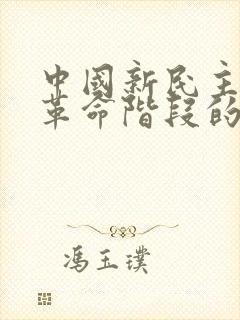 中國新民主
革命階段的
馮玉璞